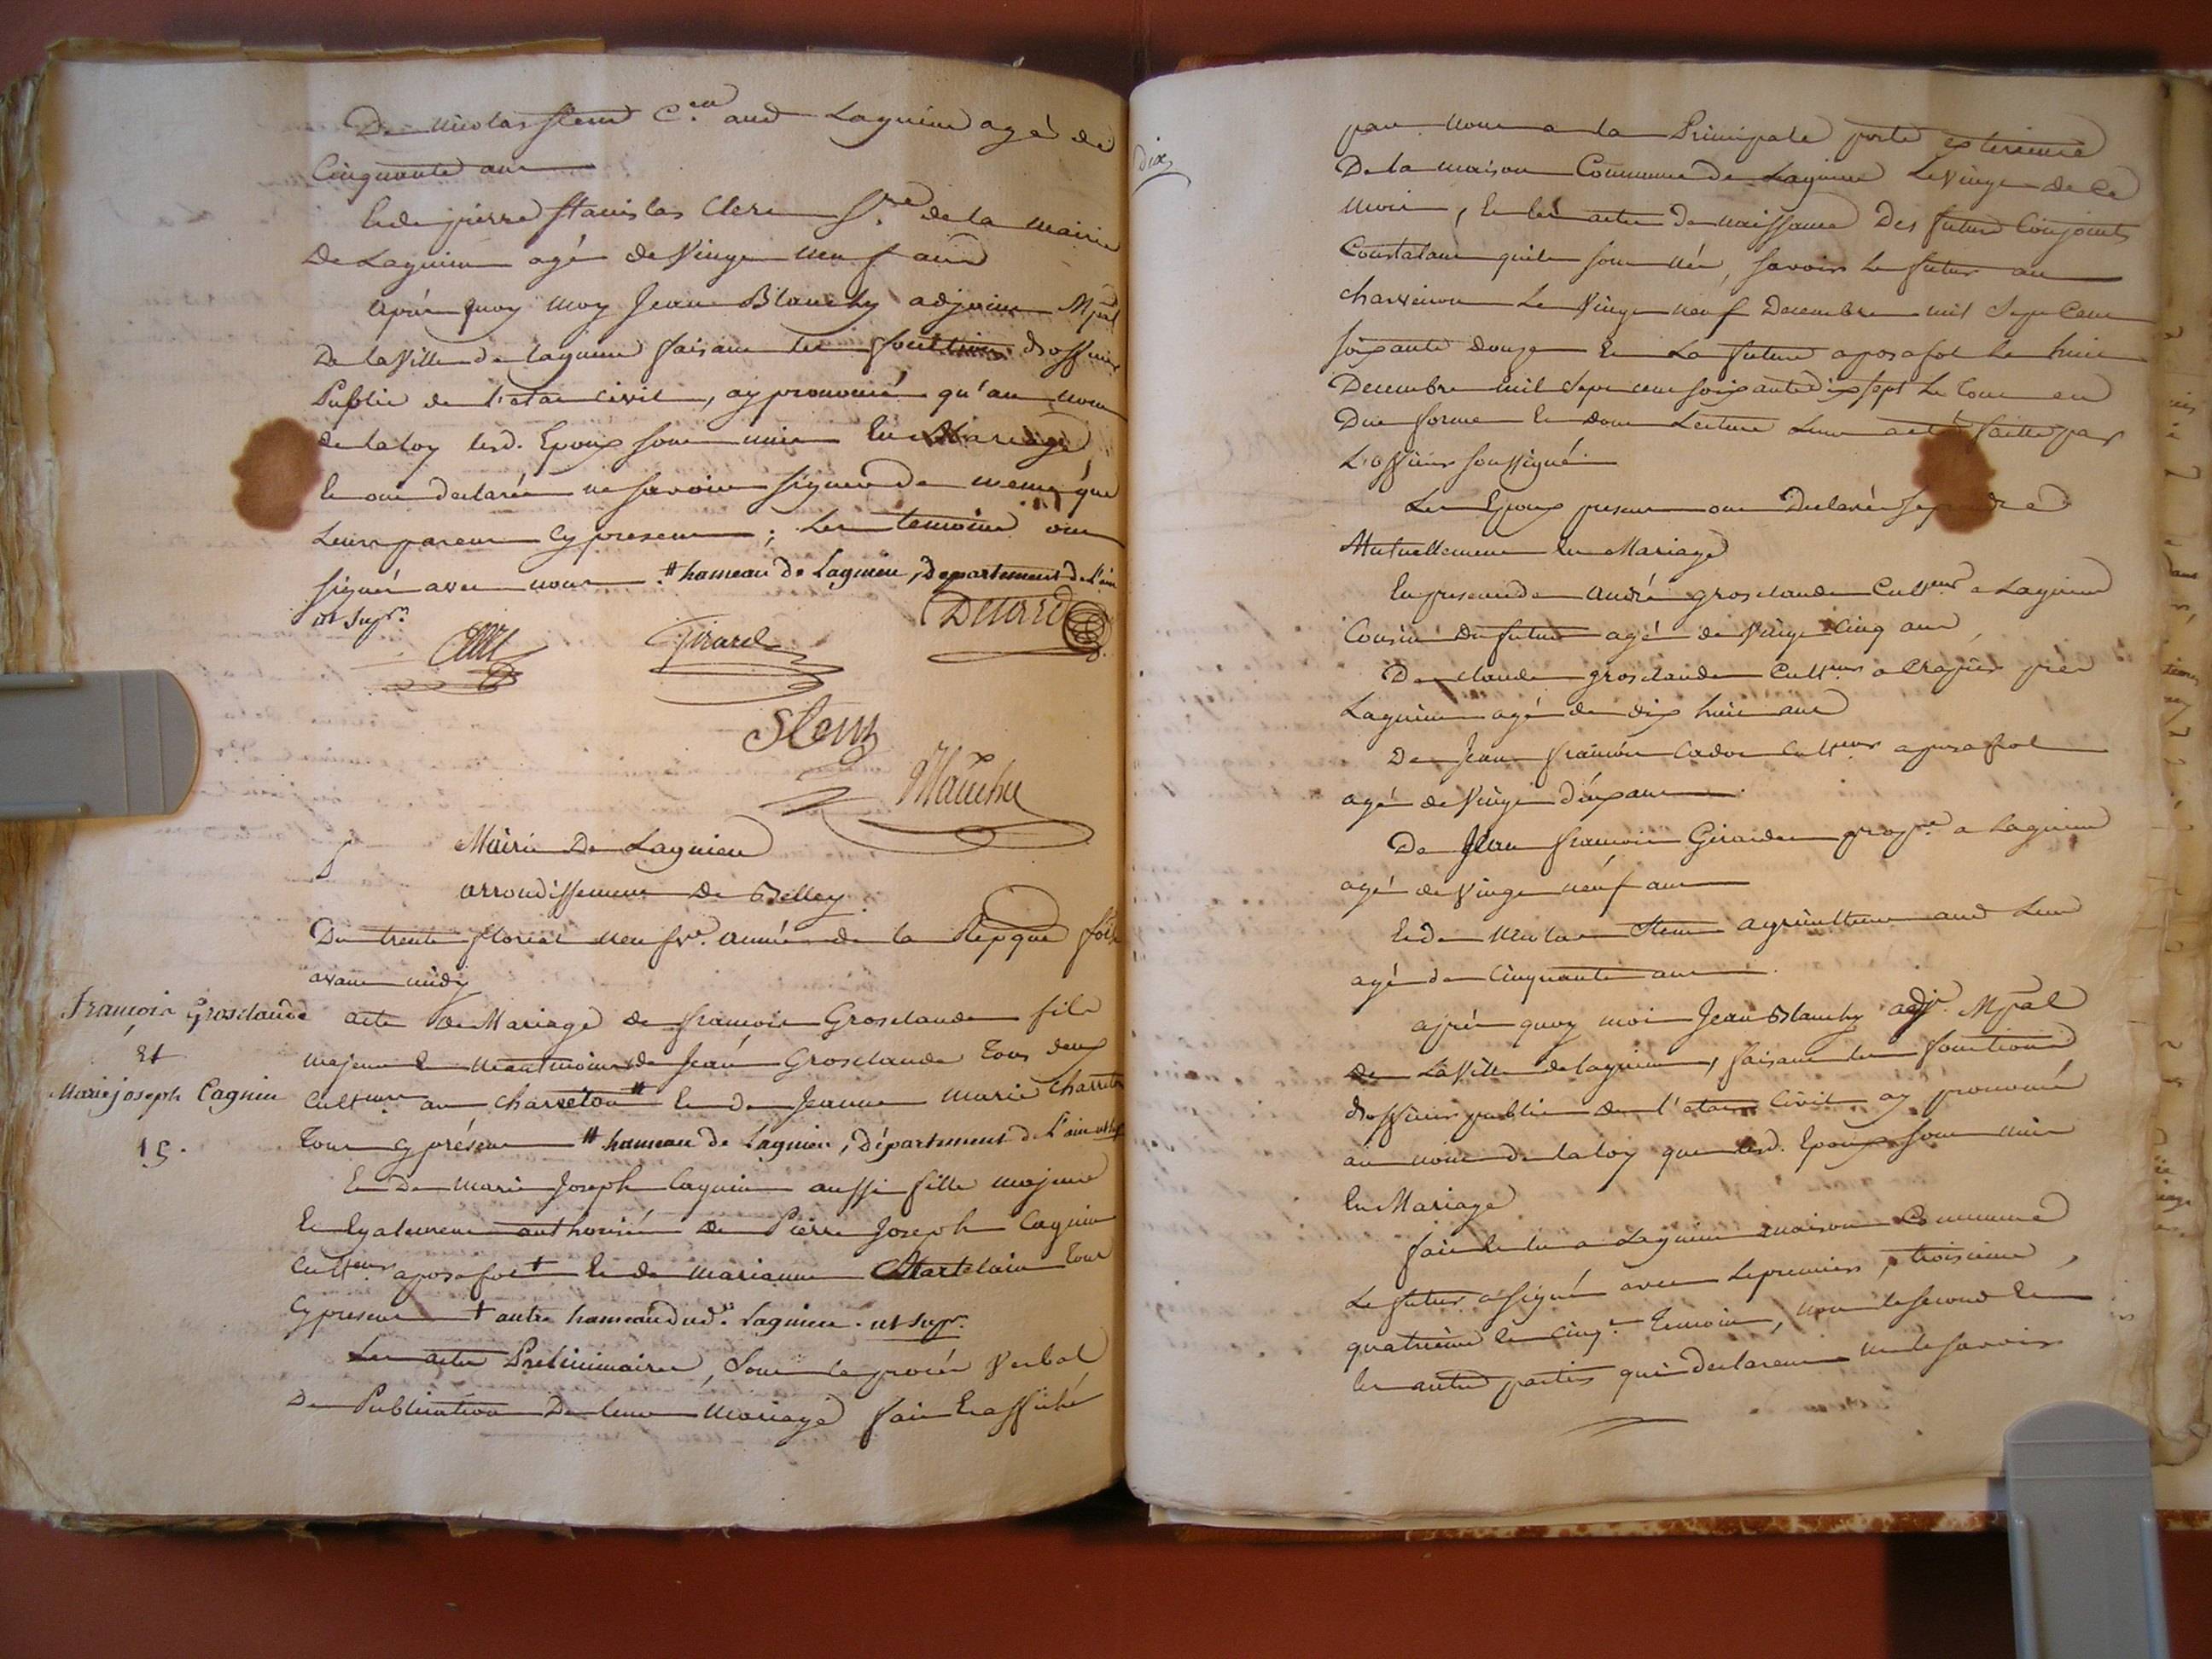 De Nicolas Stem C.en aud Lagnieu agé de
Cinquante ans
Et de pierre Stanislas Clerc S.re de la mairie
De Lagnieu agé de Vingt neuf ans
Après quoy moy Jean Blanchy adjoint Mpal
De la Ville de lagnieu faisant les fonctions d'officier
Public de l'etat civil, ay prononcé qu'au nom
de la loy lesd. Epoux sont unis En Mariage
et ont declaré ne savoir signer de meme que
Leurs parens cy presens ; Les temoins ont
signé avec nous # hameau de Lagnieu, Departement de L'ain
ut supr.
Girard
Stem
Mairie De Lagnieu
arrondissement De Belley
Du trente floreal neufve. année de la Repque foix
avant midy
François Grosclaude
Et
Marie joseph Cagnin
15.
acte de Mariage de françois Grosclaude fils
majeur et neantmoins de Jean Grosclaude Tous deux
Culteurs au charveton # et de Jeanne marie
Tous cy présens # hameau de Lagnieu, Département de L'ain
Et De marie Joseph Cagnin aussi fille majeure
Et Egalement authorisée de Pierre Joseph Cagnin
Culteur aposafol + et de marianne Martelain Tous
Cy presens + autre hameau dud. Lagnieu. ut supr.
Les actes Preliminaires, sont le procès Verbal
De Publication De leur Mariage fait Et affiché
dix
par nous a la Principale porte exterieure
De la maison Commune de Lagnieu Le Vingt de Ce
mois, Et les actes de naissance Des futurs Conjoints
Constatant quils sont nés, savoir Le futur au
charveton Le Vingt neuf Decembre mil Sept Cent
soixante douze Et La future aposafol Le huit
Decembre mil Sept cent soixante dix sept Le tout en
Due forme Et dont Lecture Leur a eté faitte par
L'officier soussigné
Les Epoux presens ont Declaré se prendre
Mutuellement En Mariage
En presence de André grosclaude Culteur a Lagnieu
Cousin du futur agé de Vingt Cinq ans
De claude grosclaude Culteur a près
Lagnieu agé de dix huit ans
De Jean françois Culteur aposafol
agé de Vingt deux ans
De Jean françois Girardet propre a lagnieu
agé de Vingt neuf ans
Et de Nicolas Stem agriculteur aud Lieu
agé de Cinquante ans
après quoy moi Jean Blanchy adjt. Mpal
De La Ville de lagnieu, faisant les fonctions
d'officier public de l'etat Civil ay prononcé
au nom de la loy que lesd. Epoux sont unis
En Mariage
fait et lu a Lagnieu maison Commune
Le futur a signé avec Le premier, troisieme,
quatrieme et cinq.e temoins, non le second et
les autres parties qui declarent ne le savoir